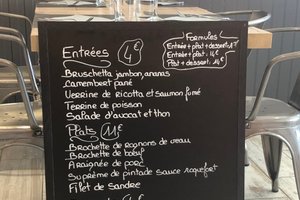 Entrées 4€
Formules
Entrée + plat + dessert:
Entrée + plat: 14€
Plat + dessert: 14€
Bruschetta jambon, ananas
Camembert pané
Verrine de ricotta et saumon fumé
Terrine de poisson
Salade d'avocat et thon
Plats 11€
Brochette de rognons de veau
Brochette de bœuf
Araignée de porc
Suprême de pintade sauce roquefort
Filet de Sandre